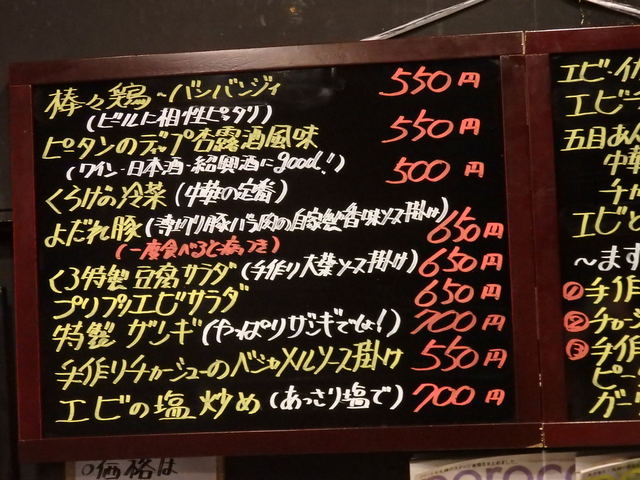 棒々鶏～バンバンジィ 550円
(ビールに相性ピッタリ)
ピータンのディップ杏露酒風味 550円
(ワイン・日本酒・紹興酒にgood!)
くらげの冷菜(中華の定番) 500円
よだれ豚(専門り豚バラ肉の自家製香味ソース掛け) 650円
(一度食べると病つき)
くろ特製豆腐サラダ(手作り大葉ソース掛け) 650円
プリプリエビサラダ 650円
特製ザンギ(やっぱりザンギでしょ!) 700円
手作りチャーシューのベシャメルソース掛け 550円
エビの塩炒め(あっさり塩で) 700円
エビ・イ
エビチ
五目あん
中華
チャ
エビと
～ます
①手作
②チャーシ
③手作
ピー
ガー
○価格は